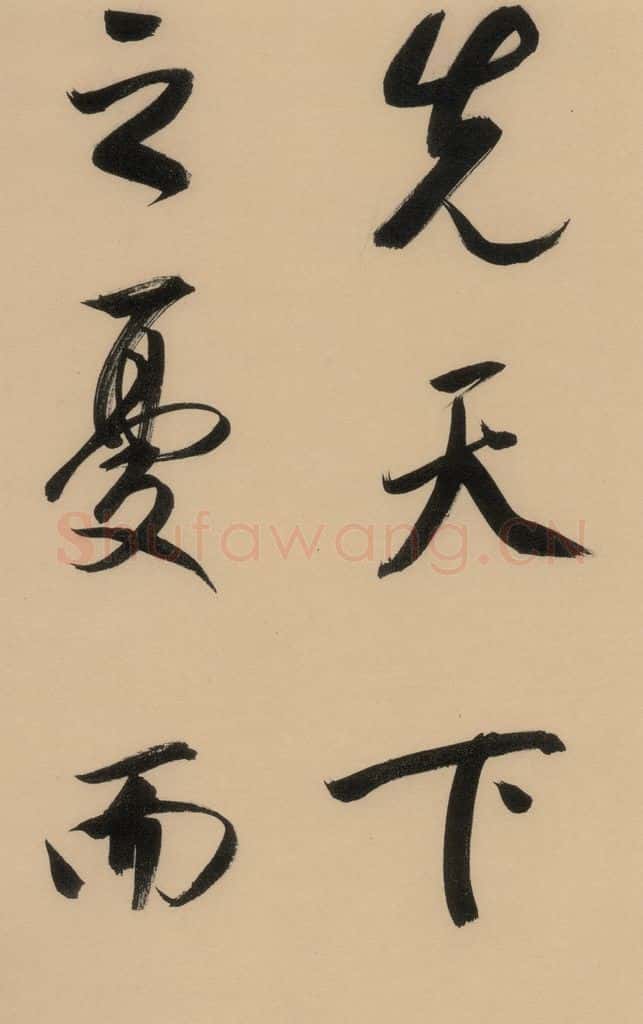 先天下
之憂而
Shufawang.CN